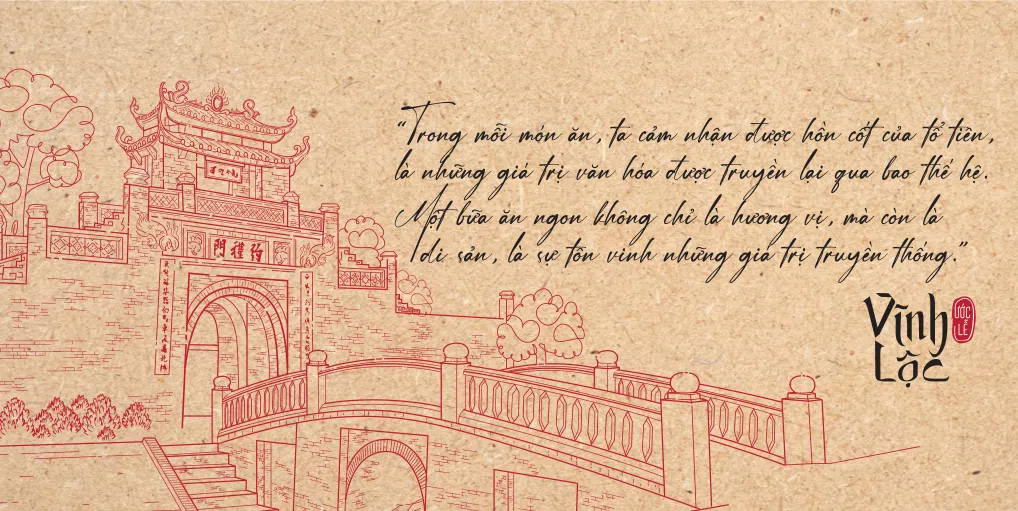 “Trong mỗi món ăn, ta cảm nhận được hồn cốt của tổ tiên,
là những giá trị văn hóa được truyền lại qua bao thế hệ.
Một bữa ăn ngon không chỉ là hương vị, mà còn là
di sản, là sự tôn vinh những giá trị truyền thống.”
Vĩnh
Lộc
ƯỚC
LỄ
門禮約